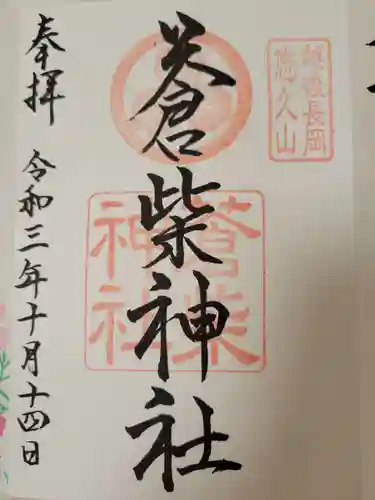 越後長岡
悠久山
蒼柴神社
蒼柴
神社
奉拝 令和三年十月十四日